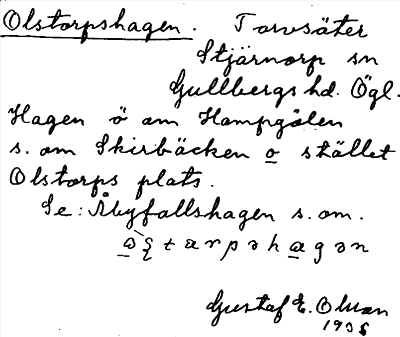 Olstorpshagen. Torvsäter
Stjärnorp sn
Gullbergs hd. Ögl.
Hagen ö om Hampgölen
s. om Skirbäcken o stället
Olstorps plats.
Se: Åbyfallshagen s. om.
Gustaf E.